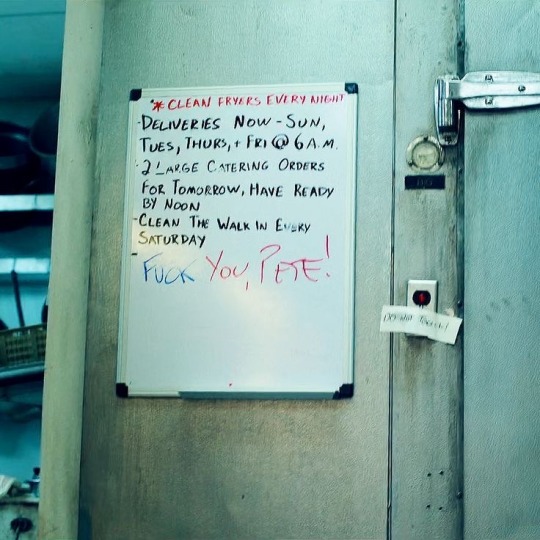 * CLEAN FRYERS EVERY NIGHT
-DELIVERIES NOW - SUN,
TUES, THURS, + FRI @ 6 A.M.
-2 LARGE CATERING ORDERS
FOR TOMORROW, HAVE READY
BY NOON
-CLEAN THE WALK IN EVERY
SATURDAY
-
FUCK YOU, PETE!
DO NOT TOUCH!